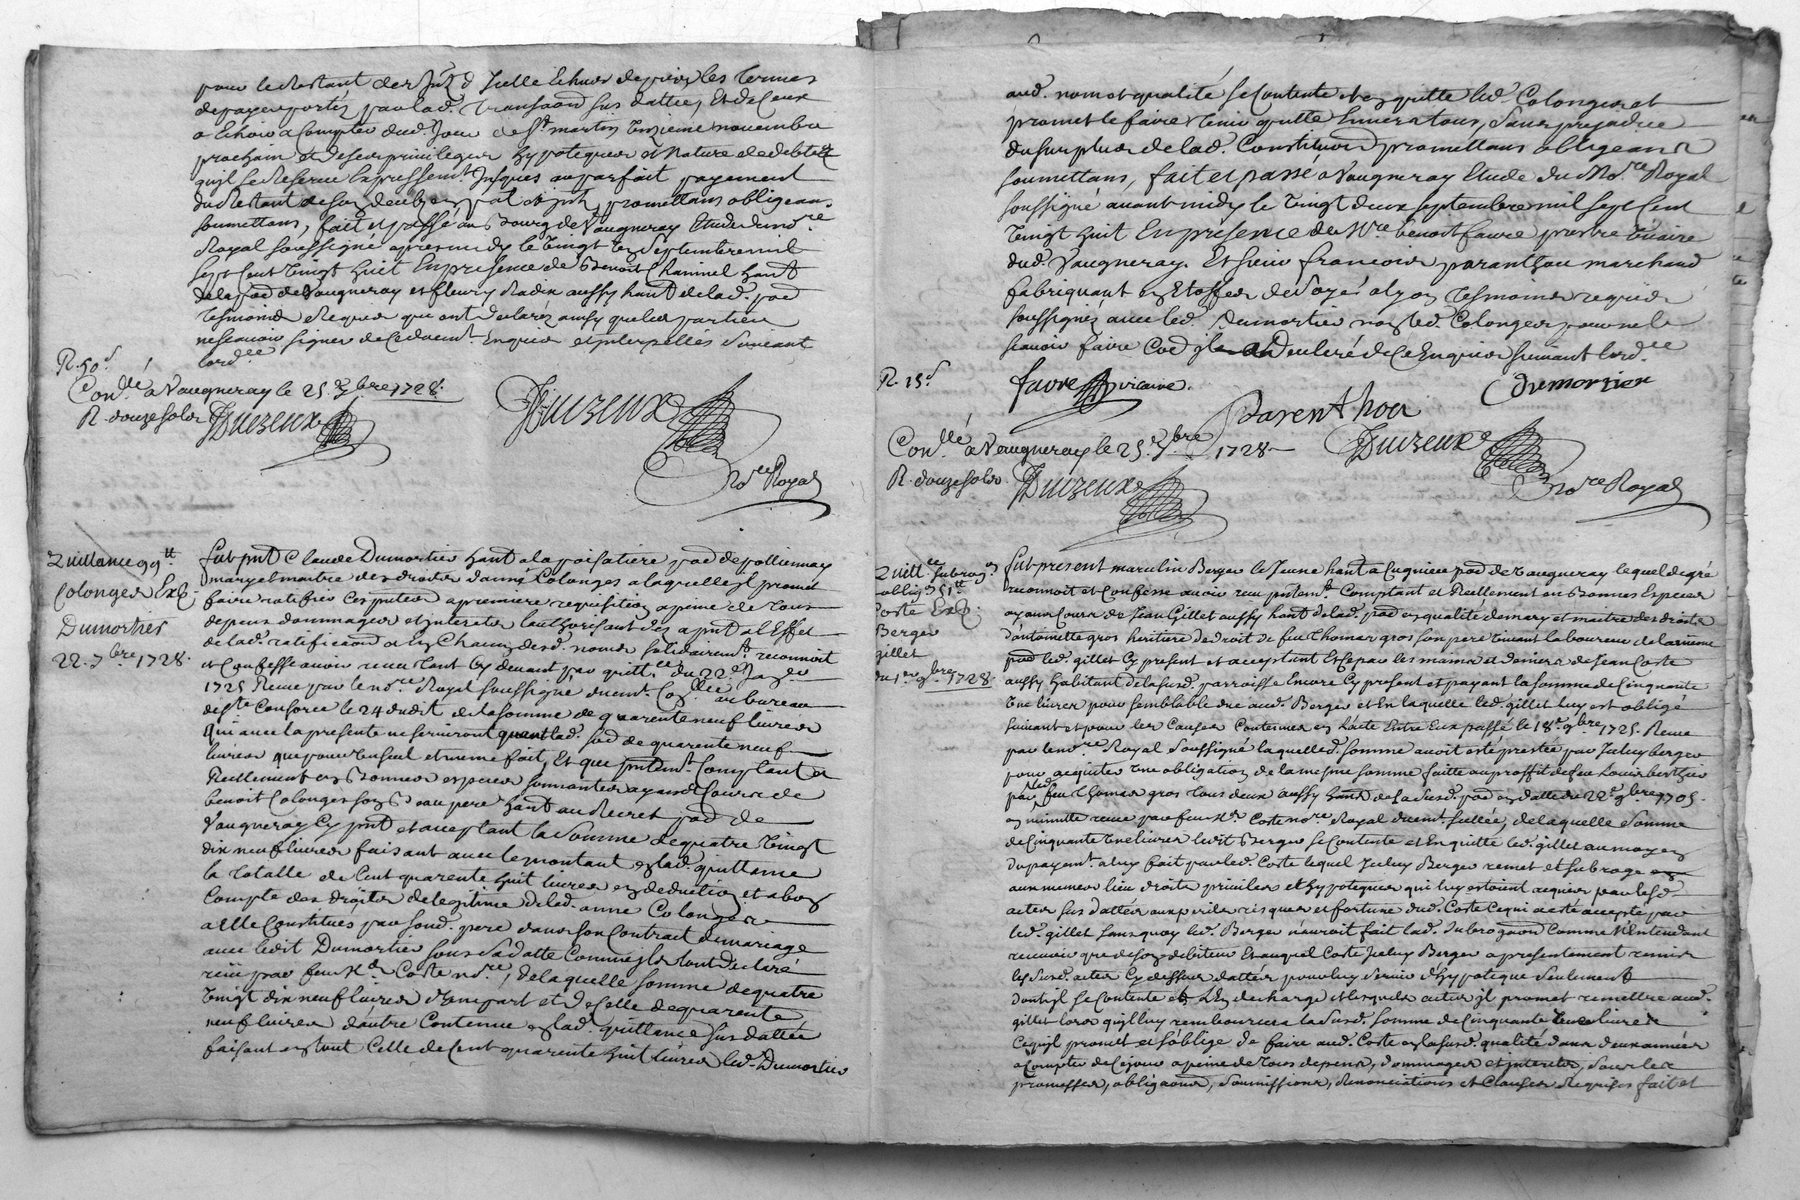 pour le restant des
de payer portés par lad. transaction sus dattée, et de ceux
a Echoir a Compter dud. Jour de St. martin Onzieme novembre
prochain et de ses privileges hypoteques et Nature de debte
qu'il se Reserve Expressemt. Jusques au parfait payement
du Restant promettans obligeans
soumettans, fait et passé au Bourg de Vaugneray Etude du no.re
Royal soussigné apres midy le Vingt septembre mil
sept Cent Vingt huit En presence de Benoit Chammel hant
de la psse de Vaugneray et fleury Radix aussy hant de lad. psse
tesmoins Requis qui ont declaréz ainsy que les parties
ne scavoir signer de Ce duemt. Enquis et interpellés suivant
lord.ce
R. 50s
Con.llé a Vaugneray le 25. 7bre 1728.
R. douze sols Duizeux
Duizeux
No.re Royal
Quittance 99tt
Colonges Exp.
Dumortier
22. 7bre 1728.
fut pnt Claude Dumortier hant a la poisatiere psse de pollionnay
mary et maitre des droits d'anne Colonges a laquelle il promet
faire ratifier Ces pntes a premiere requisition a peine de tous
depens dommages et interets lauthorisant dez a pnt a l'Effet
de lad. ratification a Ez Chacuns desd. noms solidairemt. reconnoit
et Confesse avoir receu tant Cy devant par quitt.ce du 22e. Janv.
1725 Receue par le no.re Royal soussigné duemt. Con.llée au bureau
de Ste Consorce le 24 dudit de la somme de quarente neuf livres
qui avec la presente ne serviront quant lad. de quarente neuf
livres que pour un seul et meme fait, Et que pntemt. Comptant et
Reellement en Bonnes especes sonnantes ayant Cours de
benoit Colonges son Beau pere hant au Recret psse de
Vaugneray Cy pnt et acceptant la somme de quatre Vingt
dix neuf livres faisant avec le montant de lad. quittance
la totalle de Cent quarente huit livres en deduction et a bon
Compte des droits de legitime de lad. anne Colonges
a Elle Constitues par sond. pere dans son Contrat de mariage
avec ledit Dumortier sous sa datte Comme Ils l'ont declaré
receu par feu Me. Coste no.re, de laquelle somme de quatre
Vingt dix neuf livres d'une part et de Celle de quarente
neuf livres d'autre Contenue en lad. quittance sus dattée
faisant en tout Celle de Cent quarente huit livres led. Dumortier
aud. nom et qualité se Contente et en quitte led. Colonges et
promet le faire tenir quitte Envers tous, sans prejudice
du surplus de lad. Constitution promettans obligeans
soumettans, fait et passé a Vaugneray Etude du No.re Royal
soussigné avant midy le Vingt deux septembre mil sept Cent
Vingt huit En presence de Mre. benoit favre prestre Vicaire
dud. Vaugneray. Et sieur francois paranthou marchand
fabriquant en Etoffes de soye a lyon tesmoins requis
soussignez avec led. Dumortier non led. Colonges pour ne le
scavoir faire declaré de Ce Enquis suivant lord.ce
R. 15s
favre vicaire.
Dumortier
Parenthou
Con.llé a Vaugneray le 25. 7bre 1728
Duizeux
R. douze sols. Duizeux
No.re Royal
Quitt.ce subrog.on
oblig. 51tt
Coste Exp.
Berger
gillet
du 1er 8bre 1728
fut present marculin Berger le Jeune hant a Cugnieu psse de Vaugneray lequel de gré
reconnoit et Confesse avoir receu pntemt. Comptant et Reellement en Bonnes Especes
ayans Cours de Jean Gillet aussy hant de lad. psse en qualité de mary et maitre des droits
d'antoinette gros heritiere de droit de feu Thomas gros son pere vivant laboureur de la meme
psse led. gillet Cy present et acceptant Et Ce par les mains et deniers de Jean Coste
aussy habitant de la susd. parroisse Encore Cy present et payant la somme de Cinquante
une livres pour semblable due aud. Berger et En laquelle led. gillet luy est obligé
suivant et pour les Causes Contenues en l'acte Entre Eux passé le 18e. 9bre 1725. Receu
par le no.re Royal soussigné laquelled. somme avoit esté prestée par Iceluy berger
pour acquiter Une obligation de la mesme somme faitte au proffit de feu Louis berthier
par led. feu Thomas gros tous deux aussy hants de la susd. psse en datte du 22e 9bre 1705.
en minutte receue par feu Me. Coste no.re Royal duemt. scellée, de laquelle somme
de Cinquante une livres ledit Berger se Contente et En quitte led. gillet au moyen
du payemt. a luy fait par led. Coste lequel Iceluy Berger remet et subroge
aux memes lieu droits privileges et hypoteques qui luy estoient acquis par lesd.
actes sus dattés aux perils risques et fortune dud. Coste Ce qui a esté accepté par
led. gillet sans quoy led. Berger n'auroit fait lad. subrogation Comme N'Entendant
recevoir que de son debiteur Et auquel Coste Iceluy Berger a presentement remis
les susd. actes Cy dessus dattés pour luy servir d'hypoteque seulement
dont il se Contente et L'En decharge et lesquels actes il promet remettre aud.
gillet lors qu'il luy remboursera la susd. somme de Cinquante une livres
Ce qu'il promet et s'oblige de faire aud. Coste en la susd. qualité dans deux années
a Compter de Ce jour a peine de tous depens, dommages et interets, sous les
promesses, obligations, soumissions, Renonciations et Clauses Requises fait et